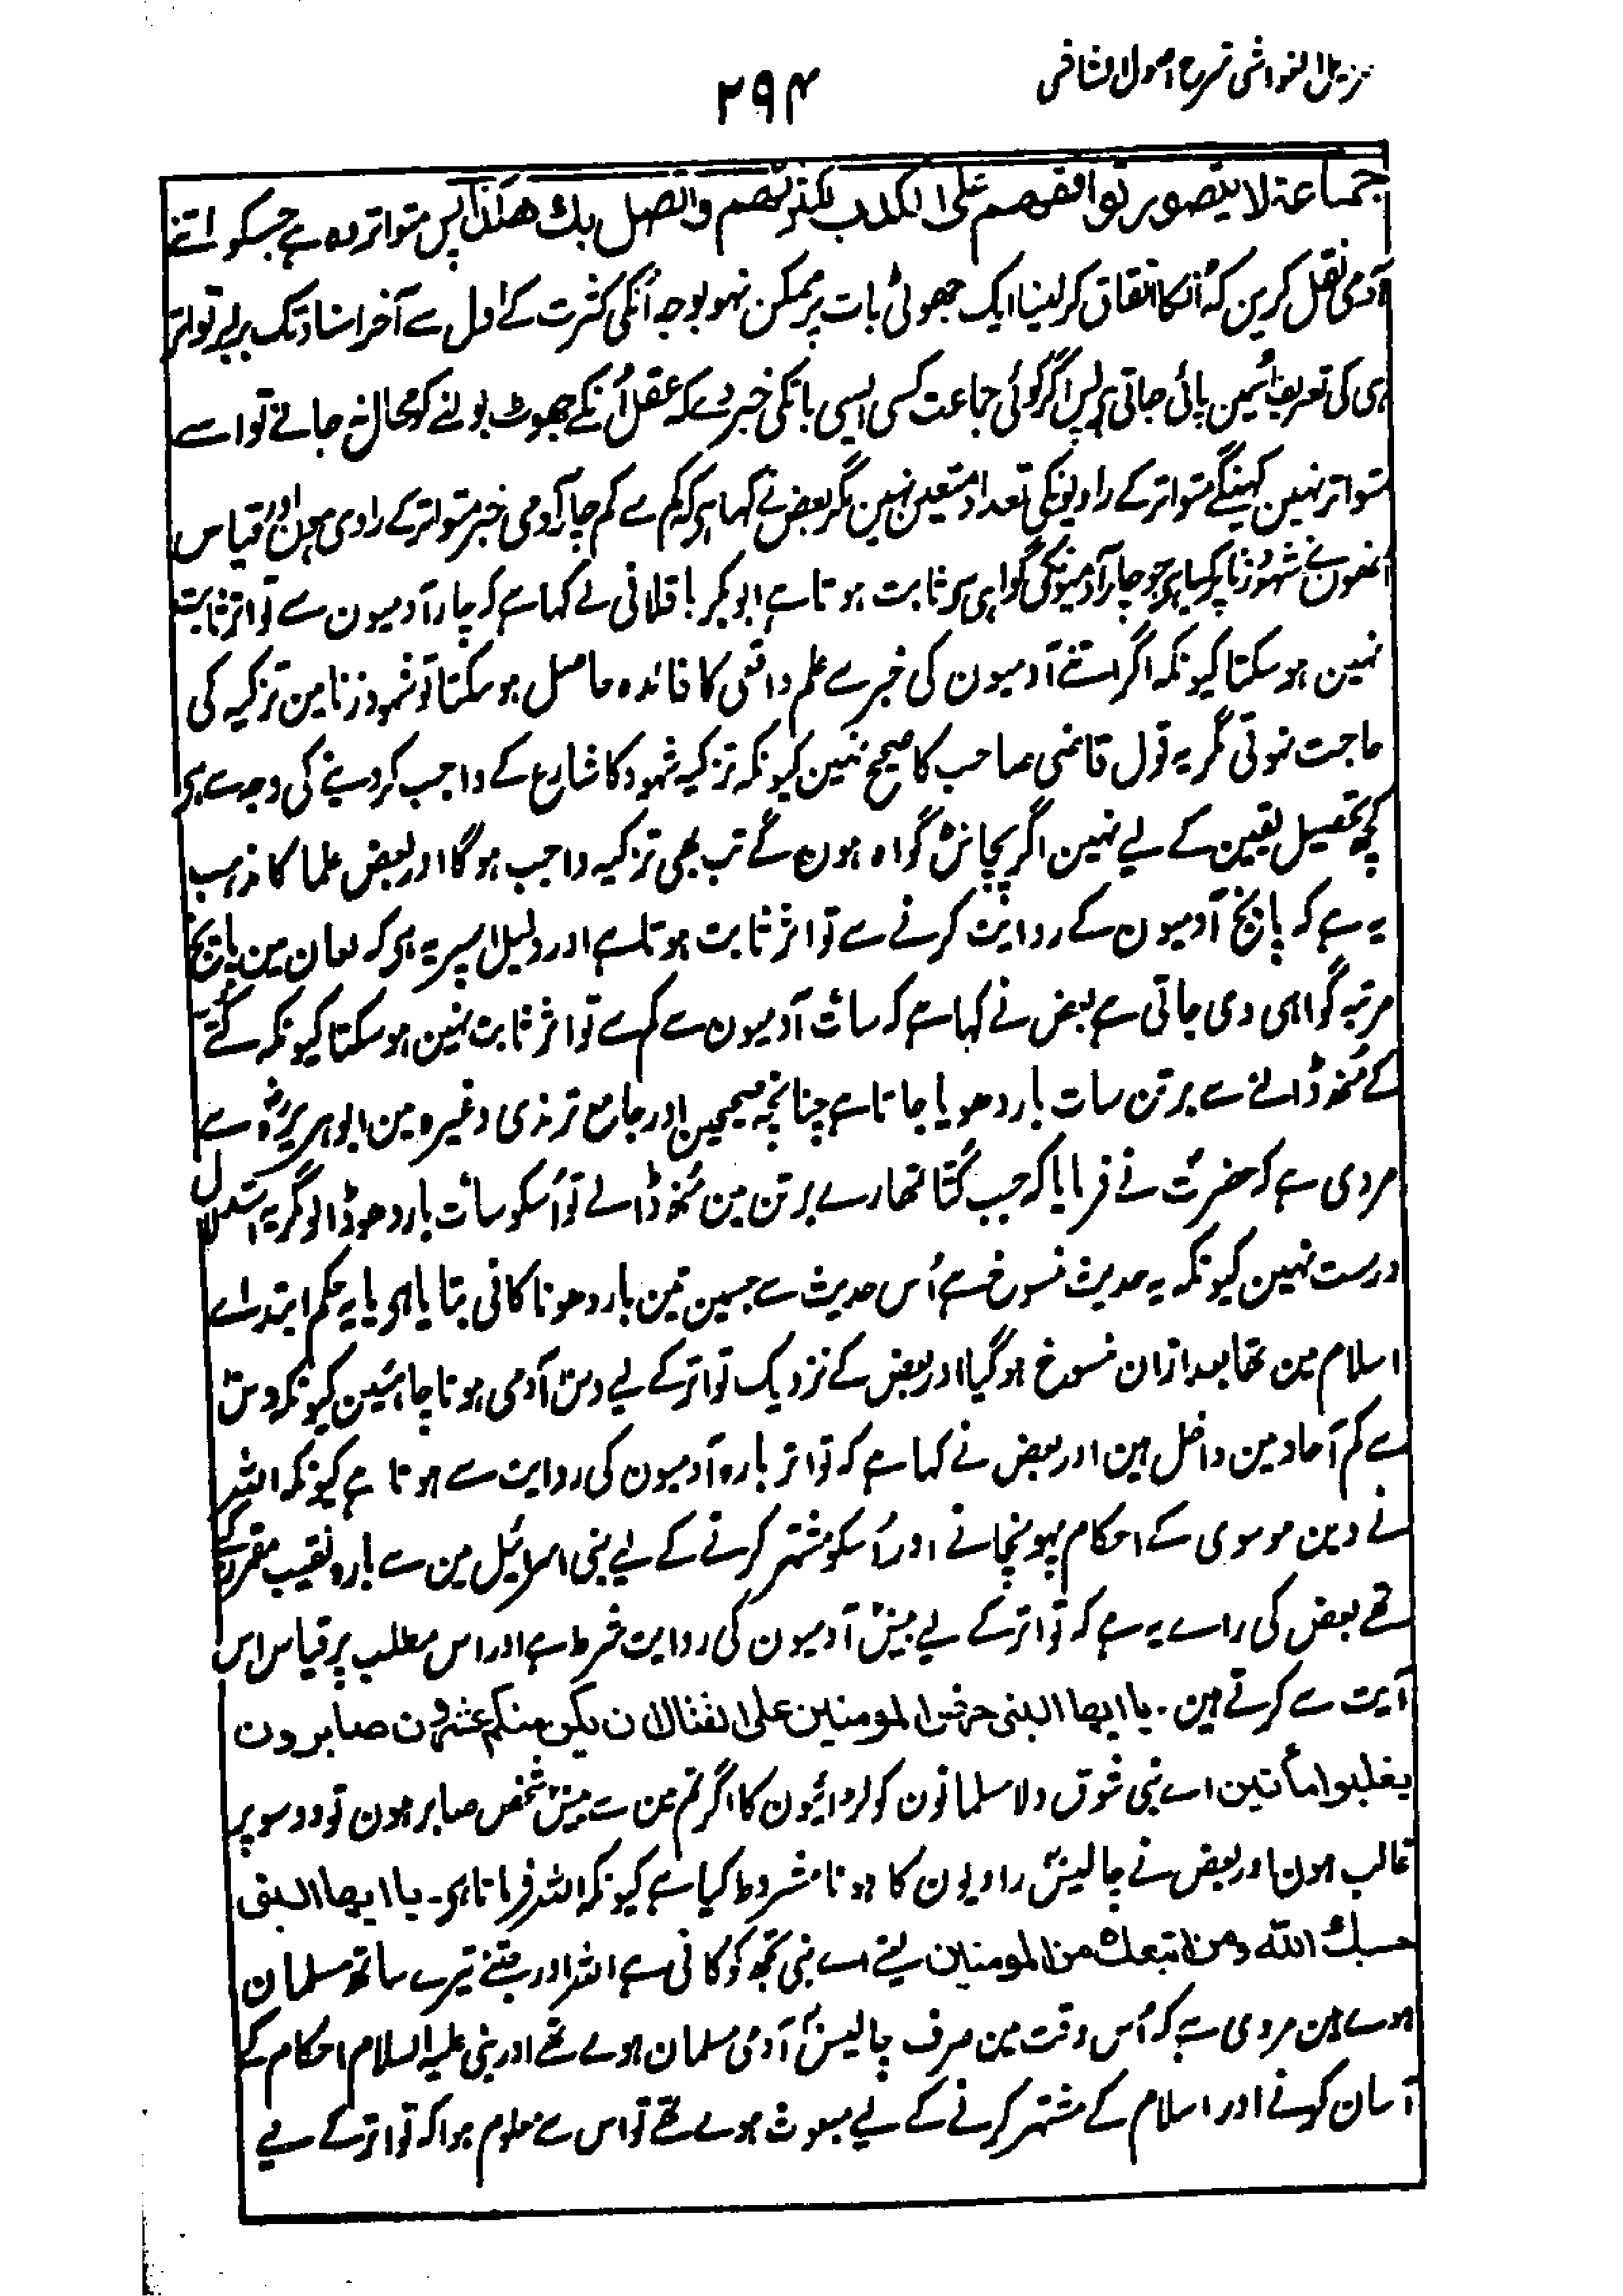 مزیل الغواشی شرح اصول الشاشی
۲۹۴
جماعۃ لا یتصور توافقھم علی الکذب لکثرتھم واتصل بک ھکذا پس متواتر وہ ہے جسکو اتنے
آدمی نقل کرین کہ اُنکا اتفاق کرلینا ایک جھوٹی بات پر ممکن نہو بوجہ اُنکی کثرت کے اول سے آخر اسناد تک برابر تواتر
ہی کی تعریف اُسمین پائی جاتی ہی پس اگر کوئی جماعت کسی ایسی بات کی خبر دے کہ عقل اُنکے جھوٹ بولنے کو محال نہ جانے تو اسے
متواتر نہین کہینگے متواتر کے راویونکی تعداد متعین نہین مگر بعض نے کہا ہی کہ کم سے کم چار آدمی خبر متواتر کے راوی ہون اور قیاس
اُنھون نے شہود زنا پر کیا ہی جو چار آدمیونکی گواہی سے ثابت ہوتا ہے ابوبکر باقلانی نے کہا ہے کہ چار آدمیون سے تواتر ثابت
نہین ہوسکتا کیونکہ اگر اتنے آدمیون کی خبر سے علم واقعی کا فائدہ حاصل ہو سکتا تو شہود زنا مین تزکیہ کی
حاجت نہوتی مگر یہ قول قاضی صاحب کا صحیح نہین کیونکہ تزکیہ شہود کا شارع کے واجب کر دینے کی وجہ سے ہی
کچھ تحصیل یقین کے لیے نہین اگر پچاس گواہ ہون گے تب بھی تزکیہ واجب ہوگا اور بعض علما کا مذہب
یہ ہے کہ پانچ آدمیون کے روایت کرنے سے تواتر ثابت ہوتا ہے اور دلیل اسپر یہ ہی کہ لعان مین پانچ
مرتبہ گواہی دی جاتی ہے بعض نے کہا ہے کہ سات آدمیون سے کم سے تواتر ثابت نہین ہوسکتا کیونکہ کتے
کے مُنھ ڈالنے سے برتن سات بار دھویا جاتا ہے چنانچہ صحیحین اور جامع ترمذی وغیرہ مین ابو ہریرہؓ سے
مروی ہے کہ حضرتؐ نے فرمایا کہ جب کُتا تمھارے برتن مین مُنھ ڈالے تو اُسکو سات بار دھو ڈالو مگر یہ استدلال
درست نہین کیونکہ یہ حدیث منسوخ ہے اُس حدیث سے جسمین تین بار دھونا کافی بتایا ہی یا یہ حکم ابتداے
اسلام مین تھا بعد ازان منسوخ ہوگیا اور بعض کے نزدیک تواتر کے لیے دس آدمی ہونا چاہئین کیونکہ دس
سے کم آحاد مین داخل ہین اور بعض نے کہا ہے کہ تواتر بارہ آدمیون کی روایت سے ہوتا ہے کیونکہ اللہ
نے دین موسوی کے احکام پہونچانے اور اُسکو مشتہر کرنے کے لیے بنی اسرائیل مین سے بارہ نقیب مقرر کیے
تھے بعض کی راے یہ ہے کہ تواتر کے لیے بیس آدمیون کی روایت شرط ہے اور اس مطلب پر قیاس اس
آیت سے کرتے ہین۔ یا ایھا النبی حرض المومنین علی القتال ان یکن منکم عشرون صابرون
یغلبوا مأتین اے نبی شوق دلا مسلمانون کو لڑائیون کا اگر تم مین سے بیس شخص صابر ہون تو دو سو پر
غالب ہون اور بعض نے چالیس راویون کا ہونا مشروط کیا ہے کیونکہ اللہ فرماتا ہی۔ یا ایھا النبی
حسبک اللہ ومن اتبعک من المومنین یعنے اے نبی تجھ کو کافی ہے اللہ اور جتنے تیرے ساتھ مسلمان
ہوے ہین مروی ہے کہ اُس وقت مین صرف چالیس آدمی مسلمان ہوے تھے اور نبی علیہ السلام احکام کے
آسان کہنے اور اسلام کے مشتہر کرنے کے لیے مبعوث ہوے تھے تو اس سے معلوم ہوا کہ تواتر کے لیے